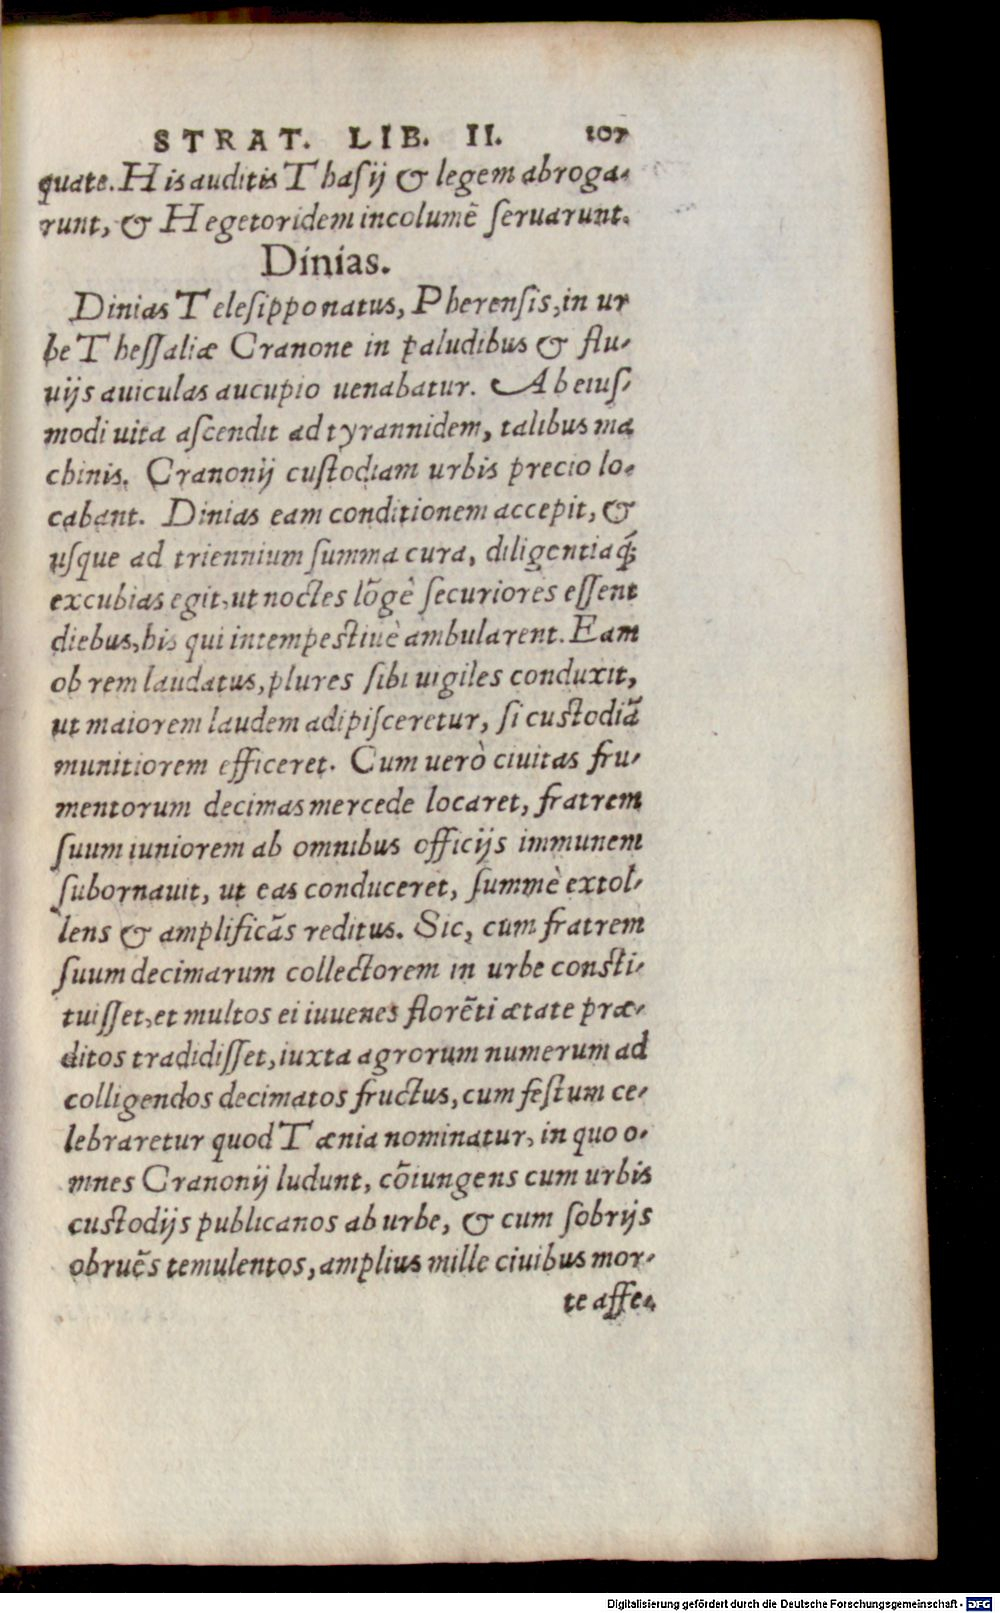 STRAT. LIB. II. 107
quate. His auditis Thasij & legem abroga-
runt, & Hegetoridem incolumẽ seruarunt.
Dinias.
Dinias Telesippo natus, Pherensis, in ur
be Thessaliæ Cranone in paludibus & flu-
uijs auiculas aucupio uenabatur. Ab eius-
modi uita ascendit ad tyrannidem, talibus ma
chinis. Cranonij custodiam urbis precio lo-
cabant. Dinias eam conditionem accepit, &
usque ad triennium summa cura, diligentiaq́;
excubias egit, ut noctes lõgè securiores essent
diebus, his qui intempestiuè ambularent. Eam
ob rem laudatus, plures sibi uigiles conduxit,
ut maiorem laudem adipisceretur, si custodiã
munitiorem efficeret. Cum uerò ciuitas fru-
mentorum decimas mercede locaret, fratrem
suum iuniorem ab omnibus officijs immunem
subornauit, ut eas conduceret, summè extol-
lens & amplificãs reditus. Sic, cum fratrem
suum decimarum collectorem in urbe consti-
tuisset, et multos ei iuuenes florẽti ætate præ-
ditos tradidisset, iuxta agrorum numerum ad
colligendos decimatos fructus, cum festum ce-
lebraretur quod Tænia nominatur, in quo o-
mnes Cranonij ludunt, cõiungens cum urbis
custodijs publicanos ab urbe, & cum sobrijs
obruẽs temulentos, amplius mille ciuibus mor-
te affe-
Digitalisierung gefördert durch die Deutsche Forschungsgemeinschaft - DFG